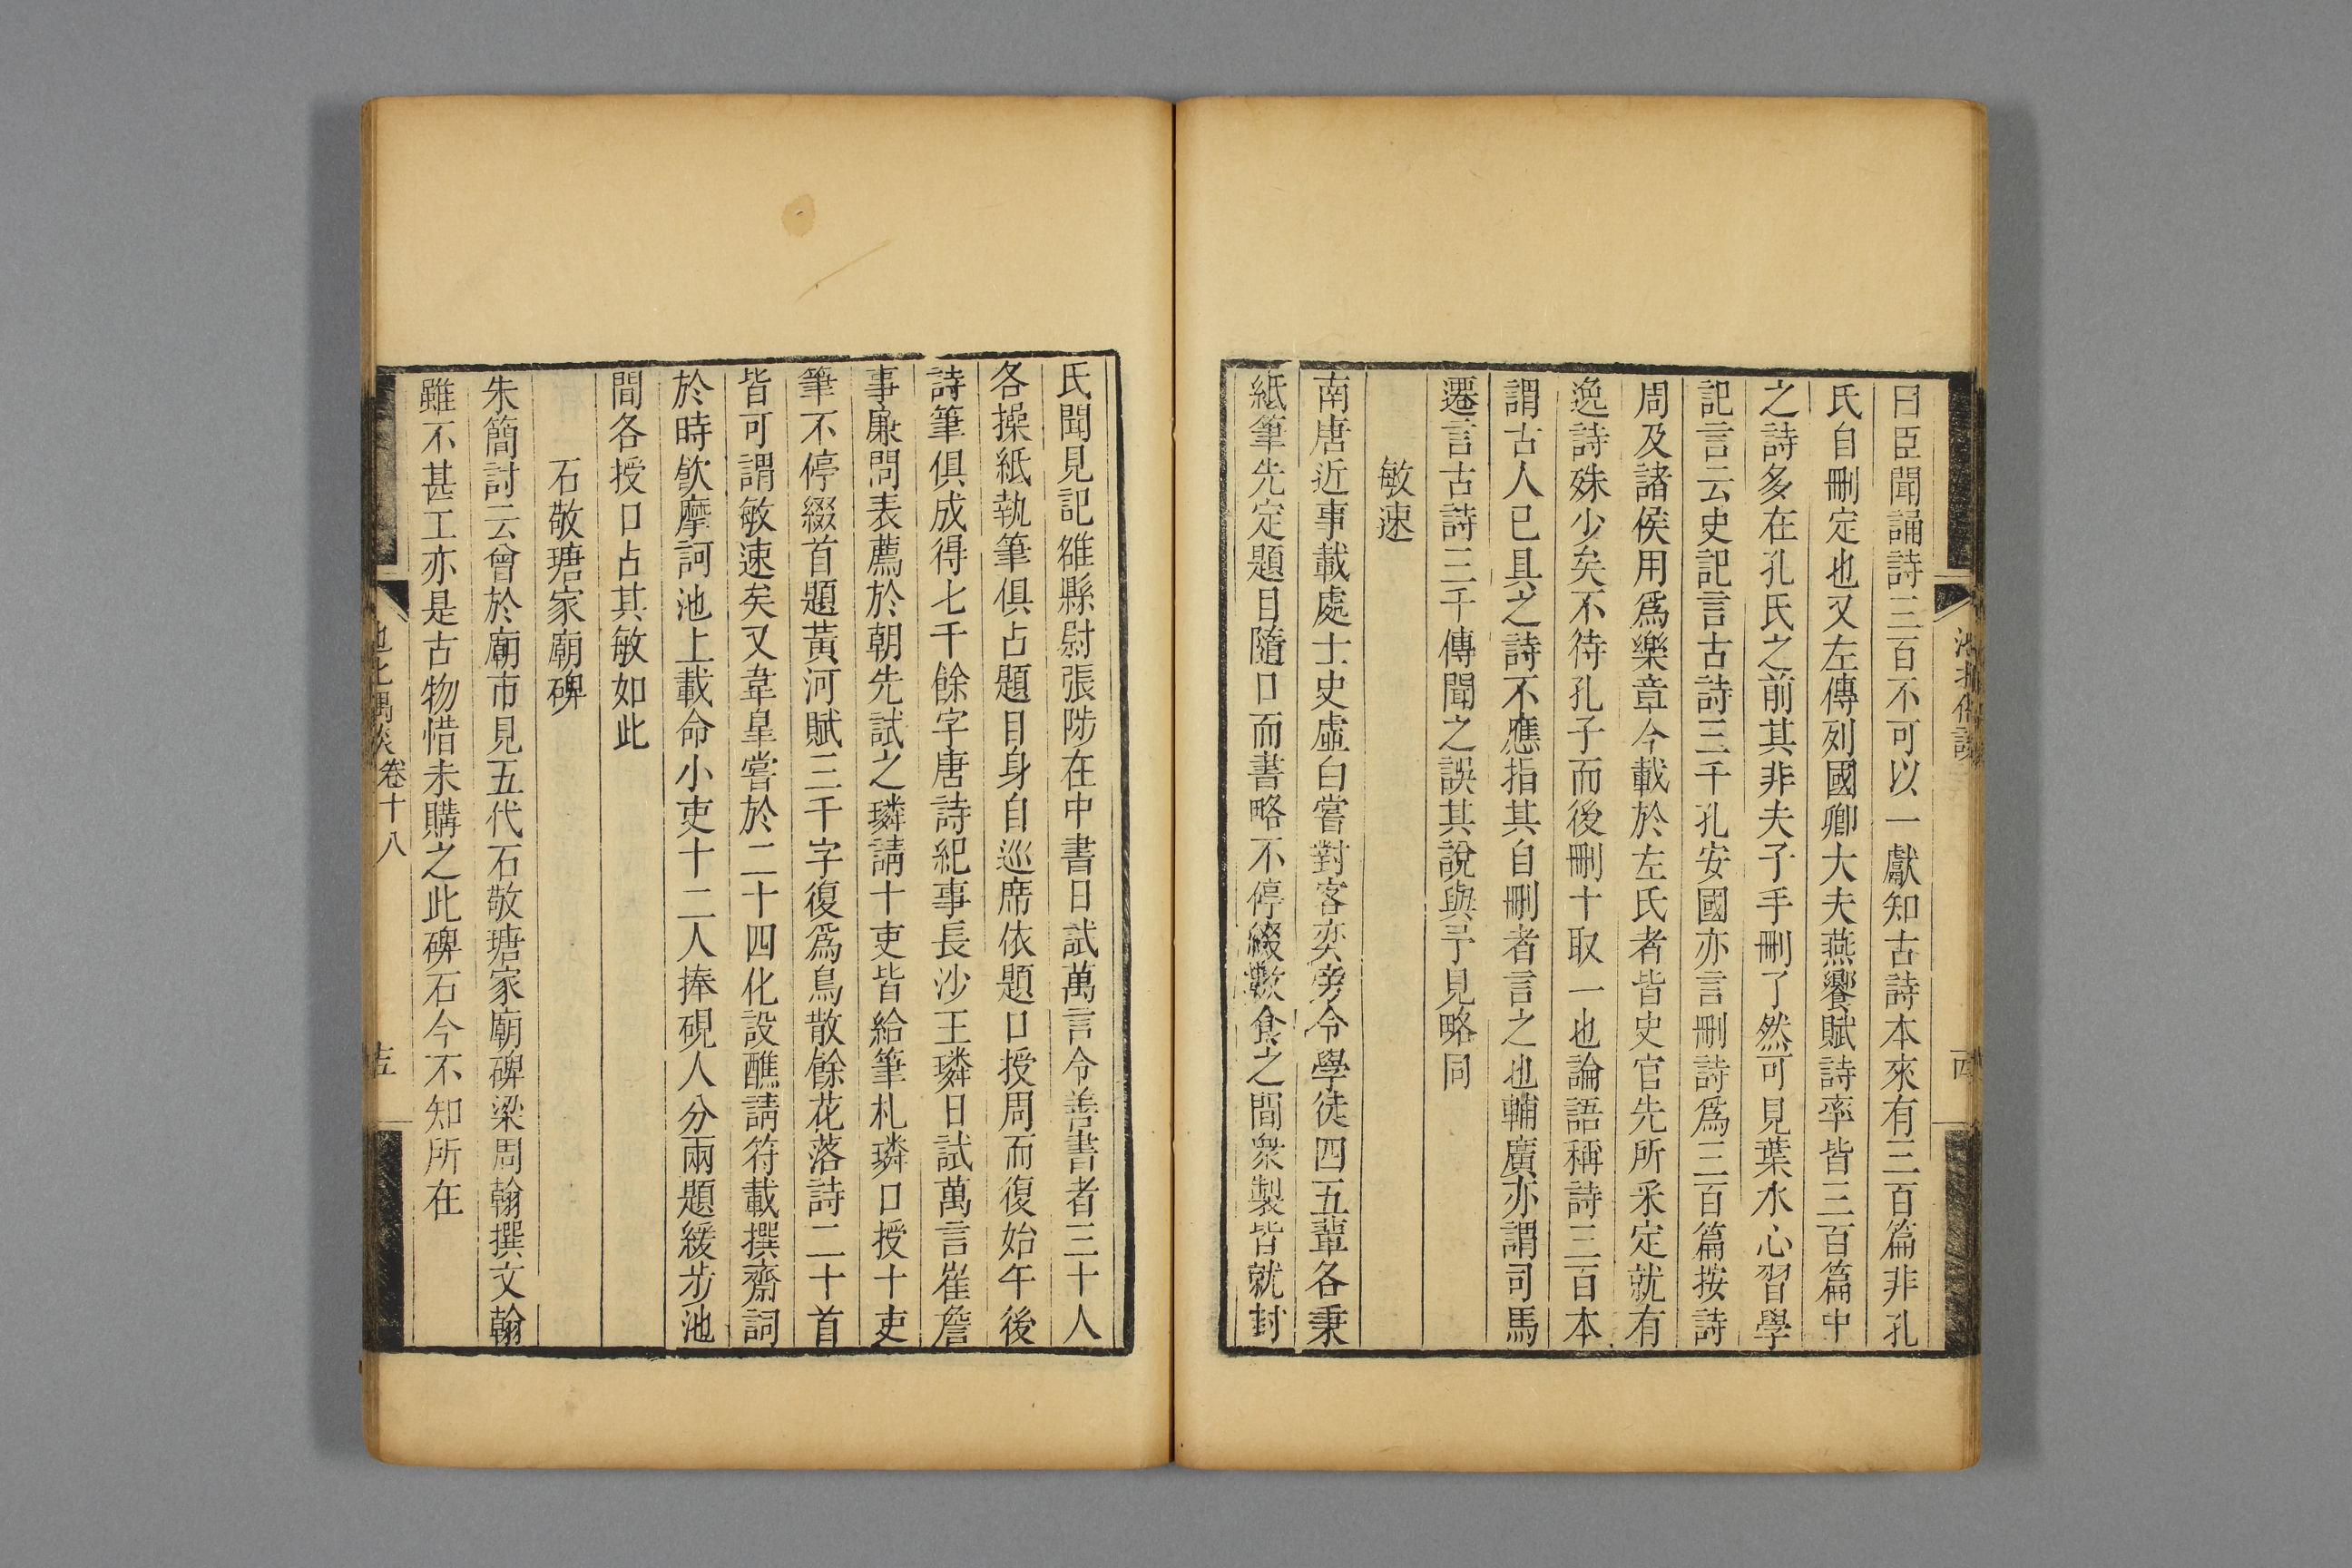 曰臣聞誦詩三百不可以一獻知古詩本來有三百篇非孔
氏自刪定也又左傳列國卿大夫燕饗賦詩率皆三百篇中
之詩多在孔氏之前其非夫子手刪了然可見葉水心習學
記言云史記言古詩三千孔安國亦言刪詩爲三百篇按詩
周及諸侯用爲樂章今載於左氏者皆史官先所采定就有
逸詩殊少矣不待孔子而後刪十取一也論語稱詩三百本
謂古人已具之詩不應指其自刪者言之也輔廣亦謂司馬
遷言古詩三千傳聞之誤其說與予見略同
敏速
南唐近事載處士史虛白嘗對客奕旁令學徒四五輩各秉
紙筆先定題目隨口而書略不停綴數食之間衆製皆就封
氏聞見記雒縣尉張陟在中書日試萬言令善書者三十人
各操紙執筆俱占題目身自巡席依題口授周而復始午後
詩筆俱成得七千餘字唐詩紀事長沙王璘日試萬言崔詹
事廉問表薦於朝先試之璘請十吏皆給筆札璘口授十吏
筆不停綴首題黃河賦三千字復爲鳥散餘花落詩二十首
皆可謂敏速矣又韋皐嘗於二十四化設醮請符載撰齋詞
於時飲摩訶池上載命小吏十二人捧硯人分兩題緩步池
間各授口占其敏如此
石敬瑭家廟碑
朱簡討云曾於廟市見五代石敬瑭家廟碑梁周翰撰文翰
雖不甚工亦是古物惜未購之此碑石今不知所在
卷十八